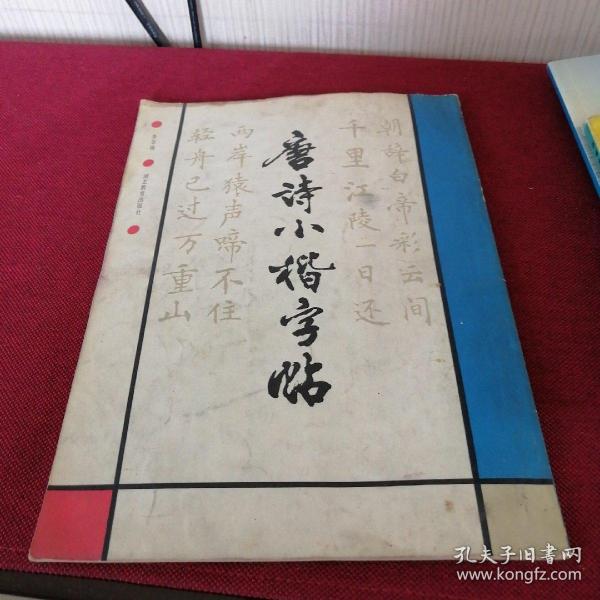 朝辞白帝彩云间
千里江陵一日还
两岸猿声啼不住
轻舟已过万重山
唐诗小楷字帖
湖北教育出版社
孔夫子旧书网
www.kongfz.com